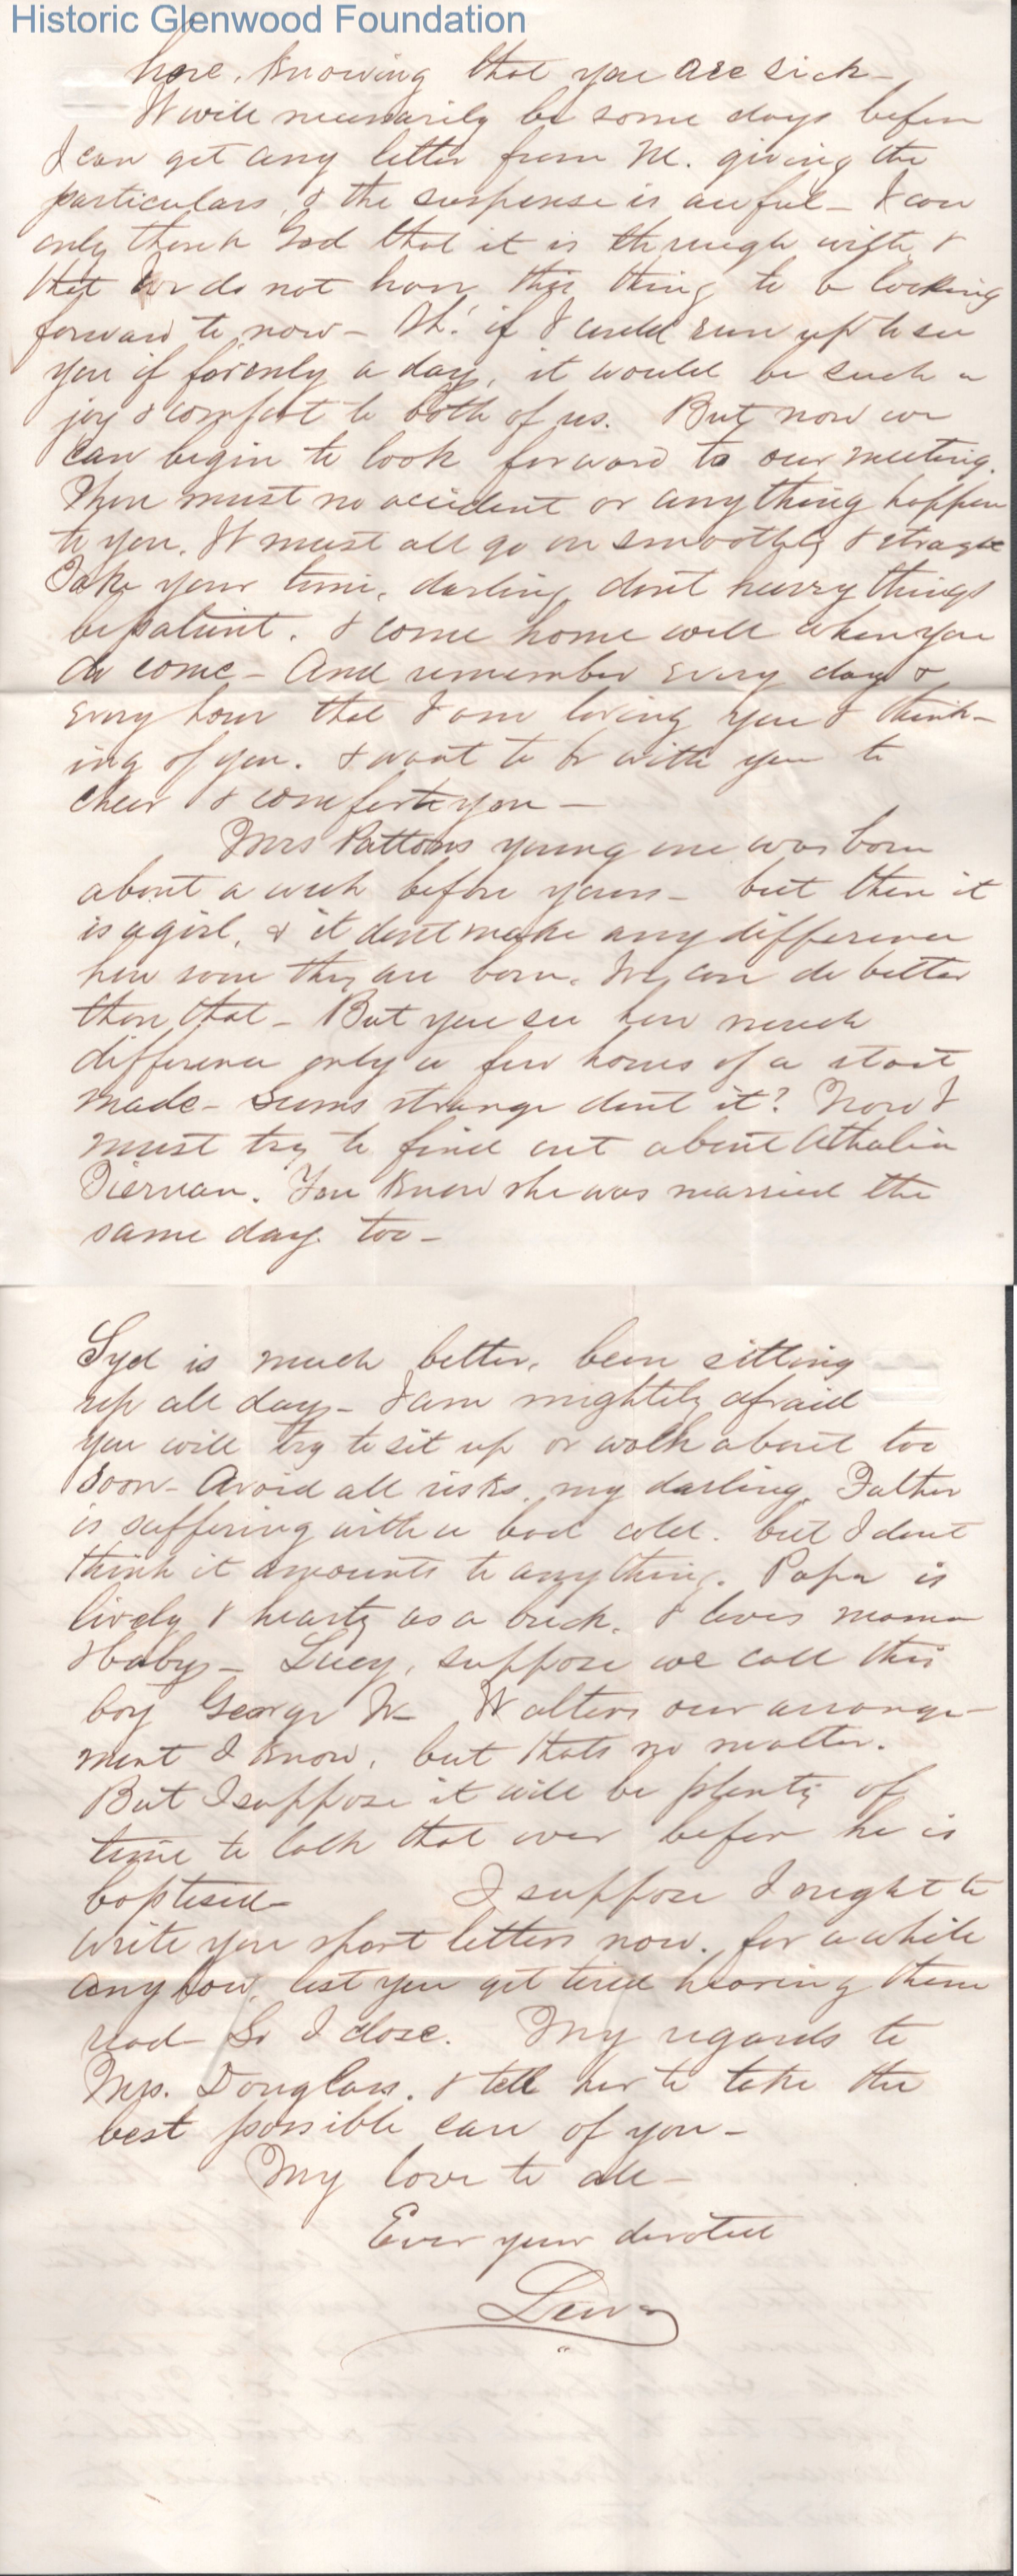 Historic Glenwood Foundation
here, knowing that you are sick -
It will necessarily be some days before
I can get any letter from M. giving the
particulars, & the suspense is awful - I can
only thank God that it is through with, &
that we do not have this thing to be looking
forward to now - Oh! if I could run up to see
you if for only a day, it would be such a
joy & comfort to both of us. But now we
can begin to look forward to our meeting.
There must no accident or anything happen
to you. It must all go on smoothly &
Take your time, darling, dont hurry things
be patient. & come home well when you
do come - And remember every day &
every hour that I am loving you & think-
ing of you. & want to be with you to
cheer & comfort you -
Mrs Pattons young one was born
about a week before yours - but then it
is a girl, & it dont make any difference
how soon they are born. We can do better
than that - But you see how much
difference only a few hours of a start
made - Seems strange dont it? Now I
must try to find out about Athalia
Tiernan. You know she was married the
same day too -
Syd is much better, been sitting
up all day - I am mightily afraid
you will try to sit up or walk about too
soon - Avoid all risks, my darling. Father
is suffering with a bad cold. but I dont
think it amounts to anything. Papa is
lively & hearty as a brick. & loves mama
& baby - Lucy, suppose we call this
boy George W - It alters our arrange-
ment I know, but thats no matter.
But I suppose it will be plenty of
time to talk that over before he is
baptised - I suppose I ought to
write you short letters now. for a while
anyhow, lest you get tired hearing them
read - So I close. My regards to
Mrs. Douglass. & tell her to take the
best possible care of you -
My love to all -
Ever your devoted
Lewis